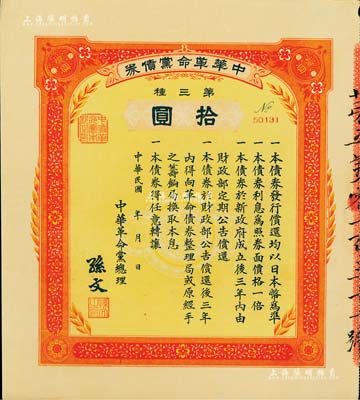 中華革命黨債券
第三種
拾圓
No 50131
一本債券發行償還均以日本幣爲準
一本債券利息爲照券面價格一倍
一本債券於新政府成立後三年內由
財政部定期公告償還
一本債券於財政部公告償還後三年
內得向革命債券整理局或原經手
之籌餉局換取本息
一本債券得任意轉讓
中華民國 年 月 日
中華革命黨總理
孫文